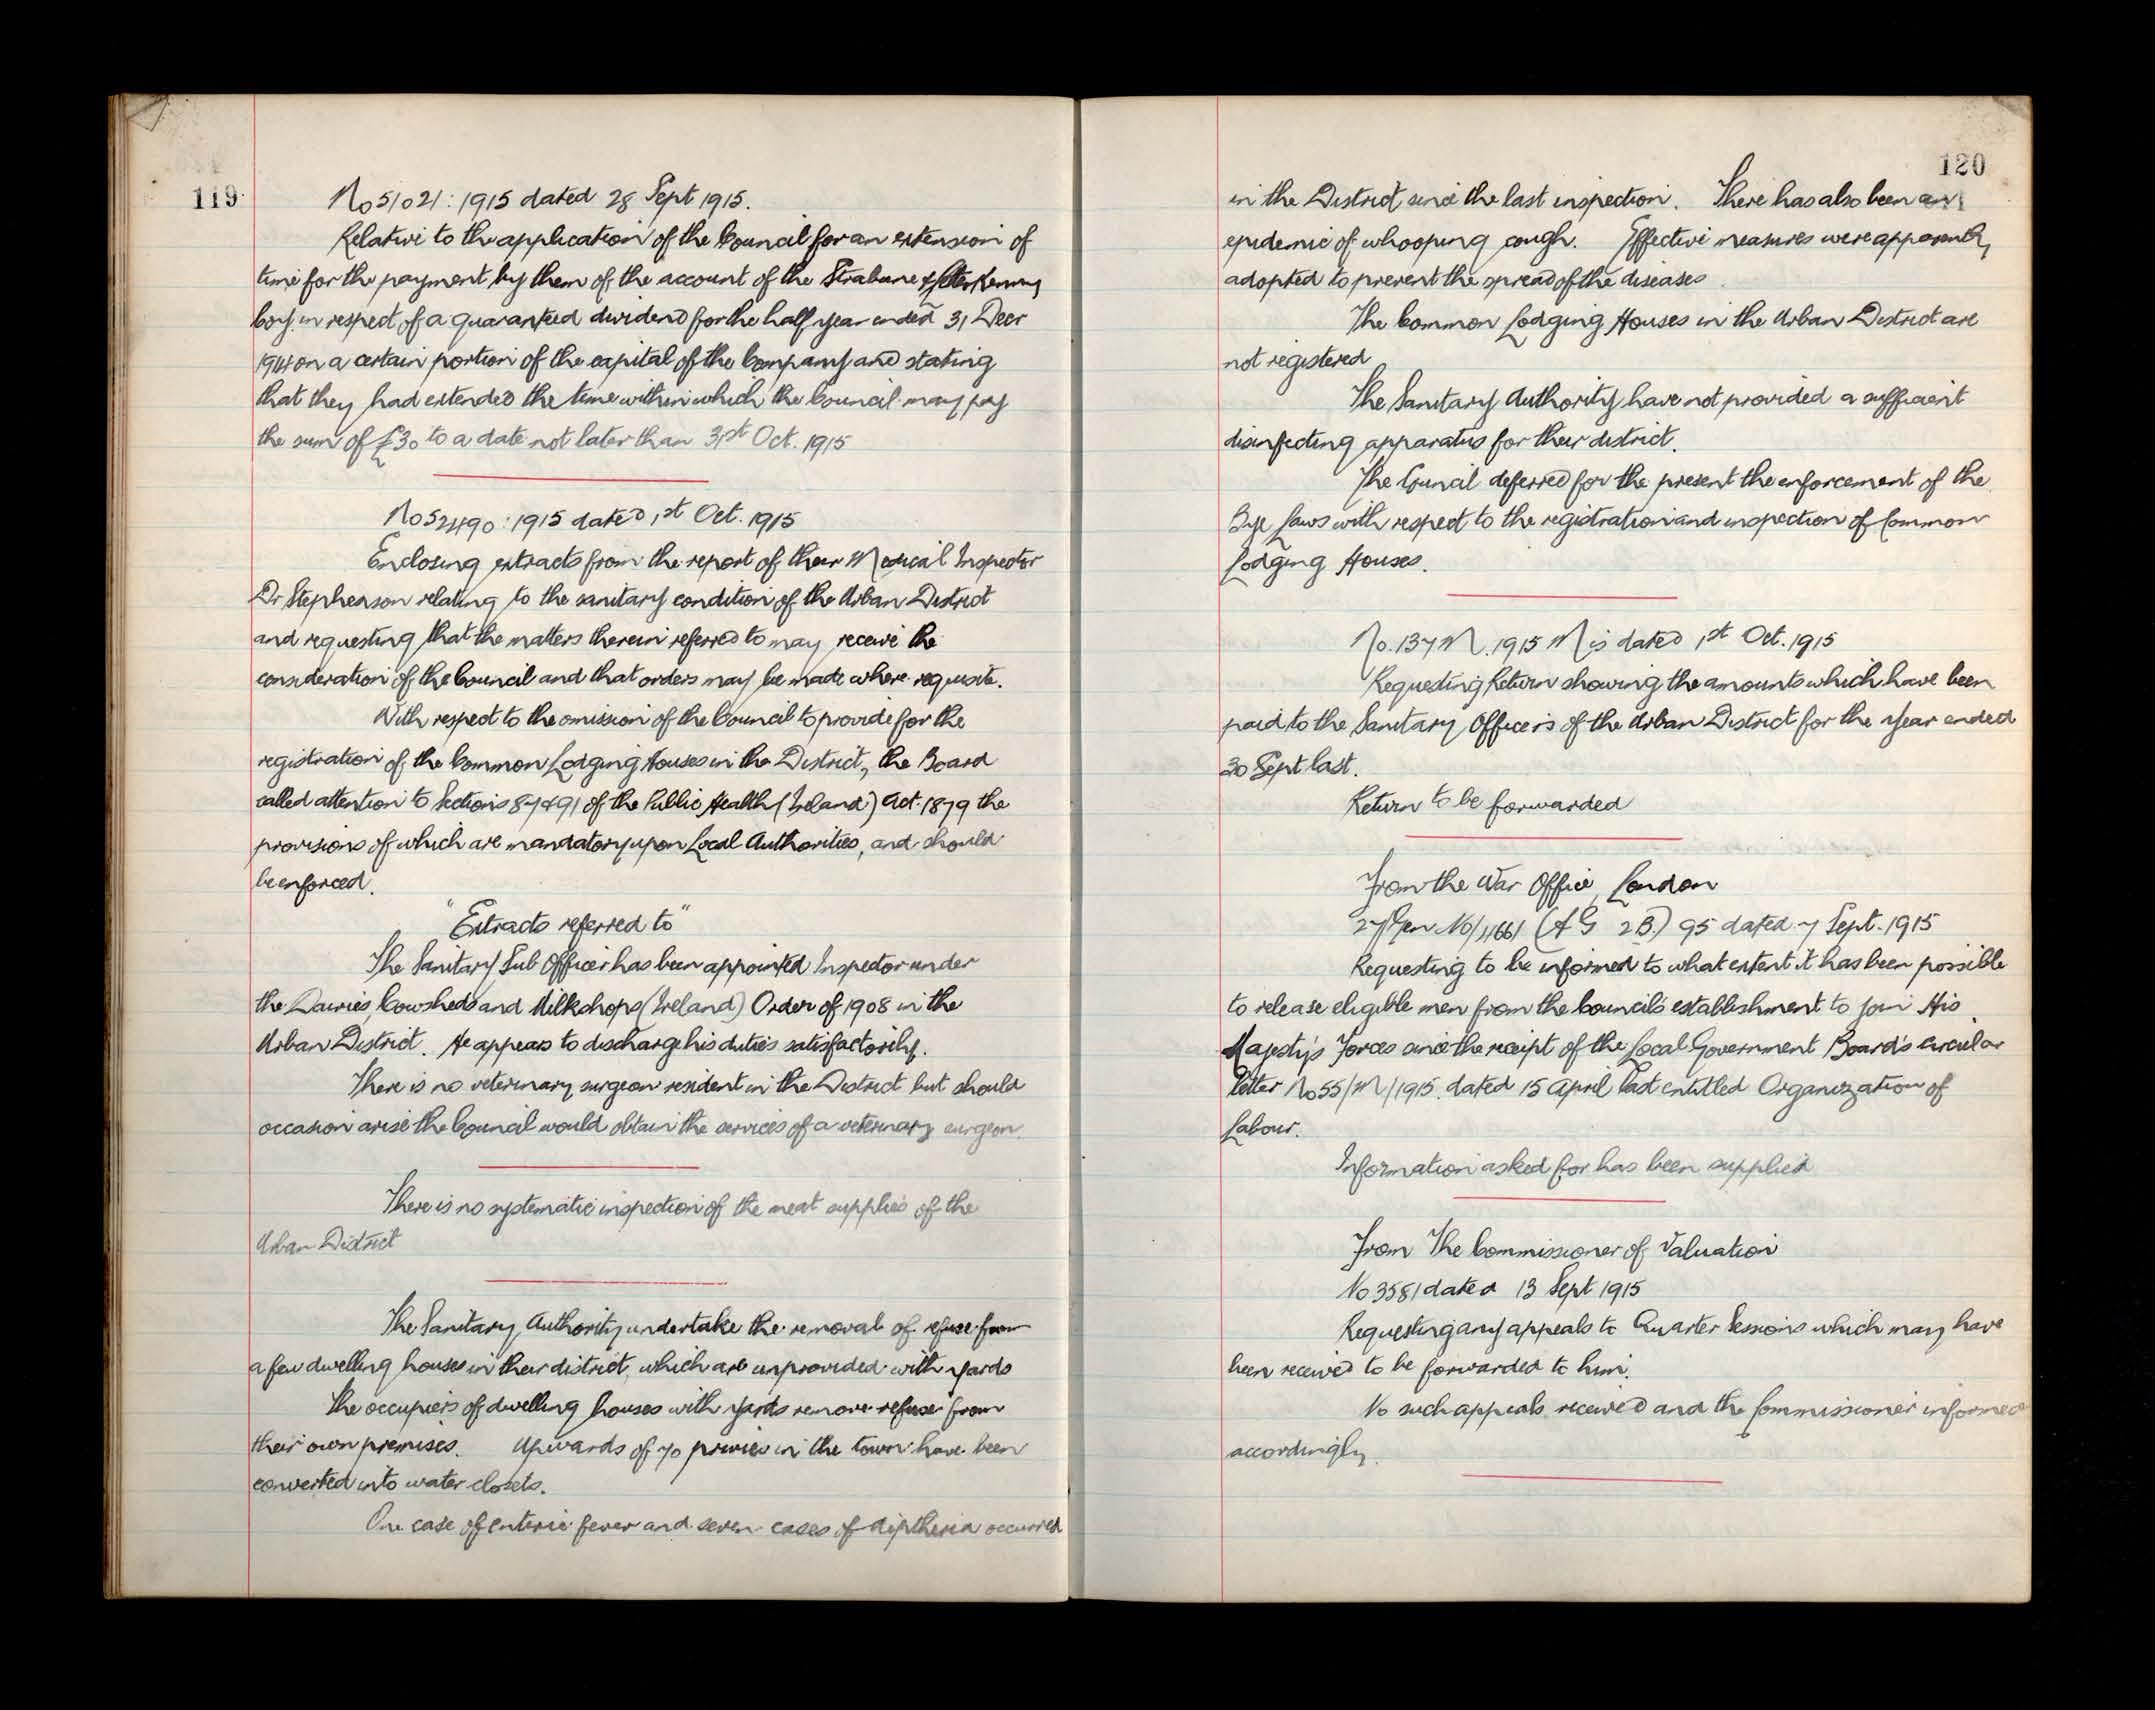 119
No 51021 : 1915 dated 28 Sept 1915.
Relative to the application of the Council for an extension of
time for the payment by them of the account of the Strabane & Letterkenny
Coy. in respect of a guaranteed dividend for the half year ended 31 Decr
1914 on a certain portion of the capital of the Company and stating
that they had extended the time within which the Council may pay
the sum of £30 to a date not later than 31st Oct. 1915
No 52490 : 1915 dated 1st Oct. 1915
Enclosing extracts from the report of their Medical Inspector
Dr Stephenson relating to the sanitary condition of the Urban District
and requesting that the matters therein referred to may receive the
consideration of the Council and that orders may be made where requisite.
With respect to the omission of the Council to provide for the
registration of the Common Lodging Houses in the District, the Board
called attention to Sections 87 & 91 of the Public Health (Ireland) Act. 1879 the
provisions of which are mandatory upon Local Authorities, and should
be enforced.
"Extracts referred to"
The Sanitary Sub Officer has been appointed Inspector under
the Dairies, Cowsheds and Milkshops (Ireland) Order of 1908 in the
Urban District. He appears to discharge his duties satisfactorily.
There is no veterinary surgeon resident in the District but should
occasion arise the Council would obtain the services of a veterinary surgeon.
There is no systematic inspection of the meat supplies of the
Urban District
The Sanitary Authority undertake the removal of refuse from
a few dwelling houses in their district, which are unprovided with yards
The occupiers of dwelling houses with yards remove refuse from
their own premises. Upwards of 70 privies in the town have been
converted into water closets.
One case of enteric fever and seven cases of diptheria occurred
120
in the District since the last inspection. There has also been an
epidemic of whooping cough. Effective measures were apparently
adopted to prevent the spread of the diseases
The Common Lodging Houses in the Urban District are
not registered
The Sanitary Authority have not provided a sufficient
disinfecting apparatus for their district.
The Council deferred for the present the enforcement of the
Bye Laws with respect to the registration and inspection of Common
Lodging Houses.
No. 137 M. 1915 Mis dated 1st Oct. 1915
Requesting Return showing the amounts which have been
paid to the Sanitary Officers of the Urban District for the year ended
30 Sept last.
Return to be forwarded
From the War Office, London
27/Gen No/1661 (A G 2B.) 95 dated 7 Sept. 1915
Requesting to be informed to what extent it has been possible
to release eligible men from the Councils establishment to join His
Majesty's Forces since the receipt of the Local Government Board's circular
letter No 55/M/1915 dated 15 April last entitled Organization of
Labour.
Information asked for has been supplied
From The Commissioner of Valuation
No 3581 dated 13 Sept 1915
Requesting any appeals to Quarter Sessions which may have
been received to be forwarded to him.
No such appeals received and the Commissioner informed
accordingly.